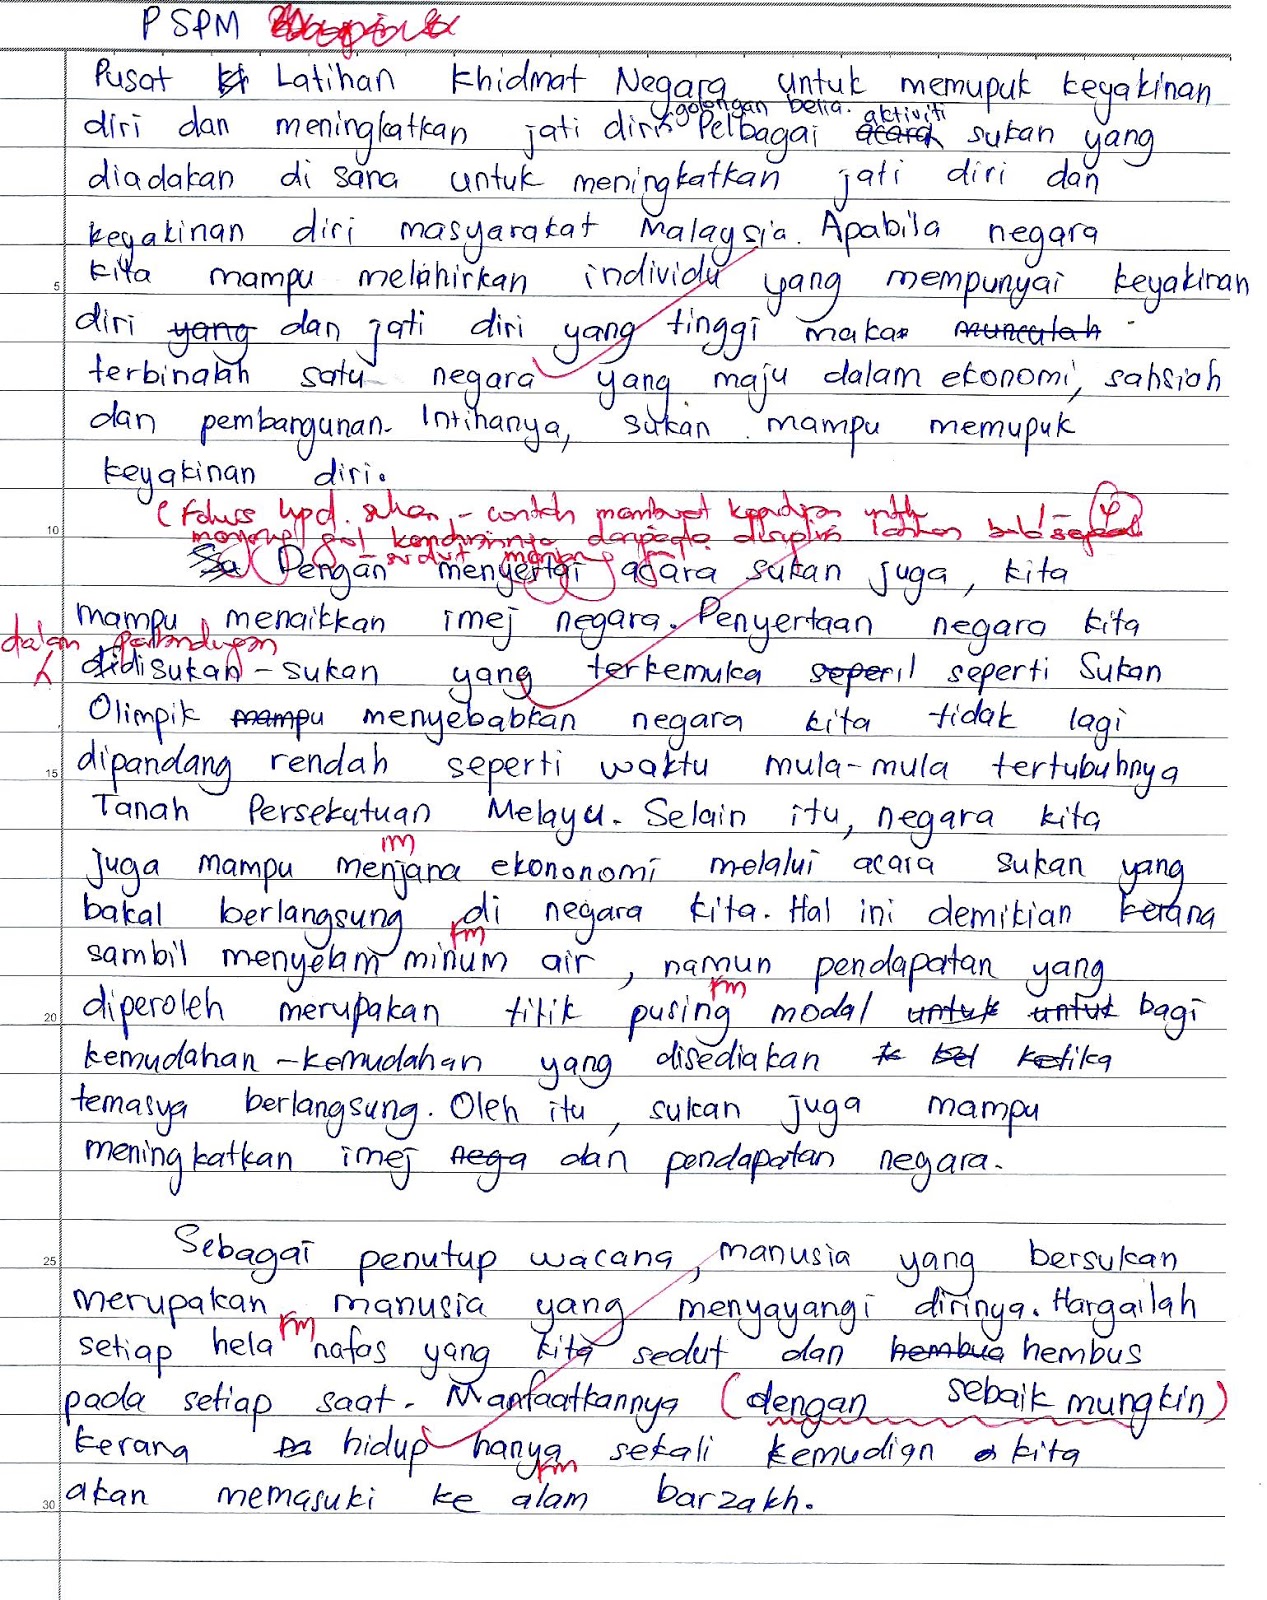 PSPM
Pusat Latihan Khidmat Negara untuk memupuk keyakinan
golongan belia. aktiviti
diri dan meningkatkan jati diri Pelbagai acara sukan yang
diadakan di sana untuk meningkatkan jati diri dan
keyakinan diri masyarakat Malaysia. Apabila negara
5
kita mampu melahirkan individu yang mempunyai keyakinan
diri yang dan jati diri yang tinggi maka munculah
terbinalah satu negara yang maju dalam ekonomi, sahsiah
dan pembangunan. Intihanya, sukan mampu memupuk
keyakinan diri.
(Fokus kpd. sukan, - contoh membuat
10
daripada disiplin latihan
Sa Dengan menyertai acara sukan juga, kita
mampu menaikkan imej negara. Penyertaan negara kita
dalam pertandingan
didisukan-sukan yang terkemuka seperil seperti Sukan
Olimpik mampu menyebabkan negara kita tidak lagi
15
dipandang rendah seperti waktu mula-mula tertubuhnya
Tanah Persekutuan Melayu. Selain itu, negara kita
m
juga mampu menjana ekononomi melalui acara sukan yang
bakal berlangsung di negara kita. Hal ini demikian kerana
km
sambil menyelam minum air, namun pendapatan yang
km
20
diperoleh merupakan titik pusing modal untuk untuk bagi
kemudahan-kemudahan yang disediakan k kel ketika
temasya berlangsung. Oleh itu, sukan juga mampu
meningkatkan imej nega dan pendapatan negara.
25
Sebagai penutup wacana, manusia yang bersukan
merupakan manusia yang menyayangi dirinya. Hargailah
km
setiap hela nafas yang kita sedut dan hembua hembus
pada setiap saat. Manfaatkannya (dengan sebaik mungkin)
kerana hidup hanya sekali kemudian kita
km
30
akan memasuki ke alam barzakh.